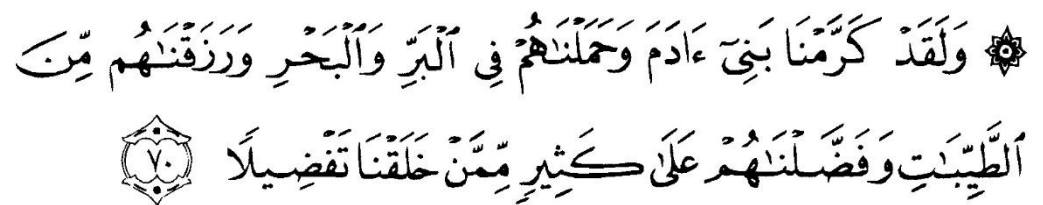 ۞ وَلَقَدْ كَرَّمْنَا بَنِىٓ ءَادَمَ وَحَمَلْنَـٰهُمْ فِى ٱلْبَرِّ وَٱلْبَحْرِ وَرَزَقْنَـٰهُم مِّنَ
ٱلطَّيِّبَـٰتِ وَفَضَّلْنَـٰهُمْ عَلَىٰ كَثِيرٍ مِّمَّنْ خَلَقْنَا تَفْضِيلًا ٧٠